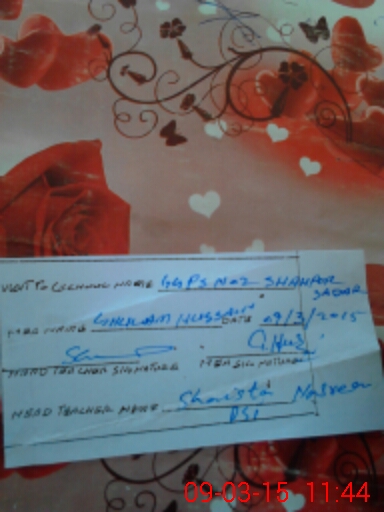 VISIT TO SCHOOL NAME GGPS NO2 SHAHPUR
SADAR
MEA NAME GHULAM HUSSAIN DATE 09/3/2015
HEAD TEACHER SIGNATURE MEA SIGNATURE
HEAD TEACHER NAME Shaista Nasreen
PST
09-03-15 11:44